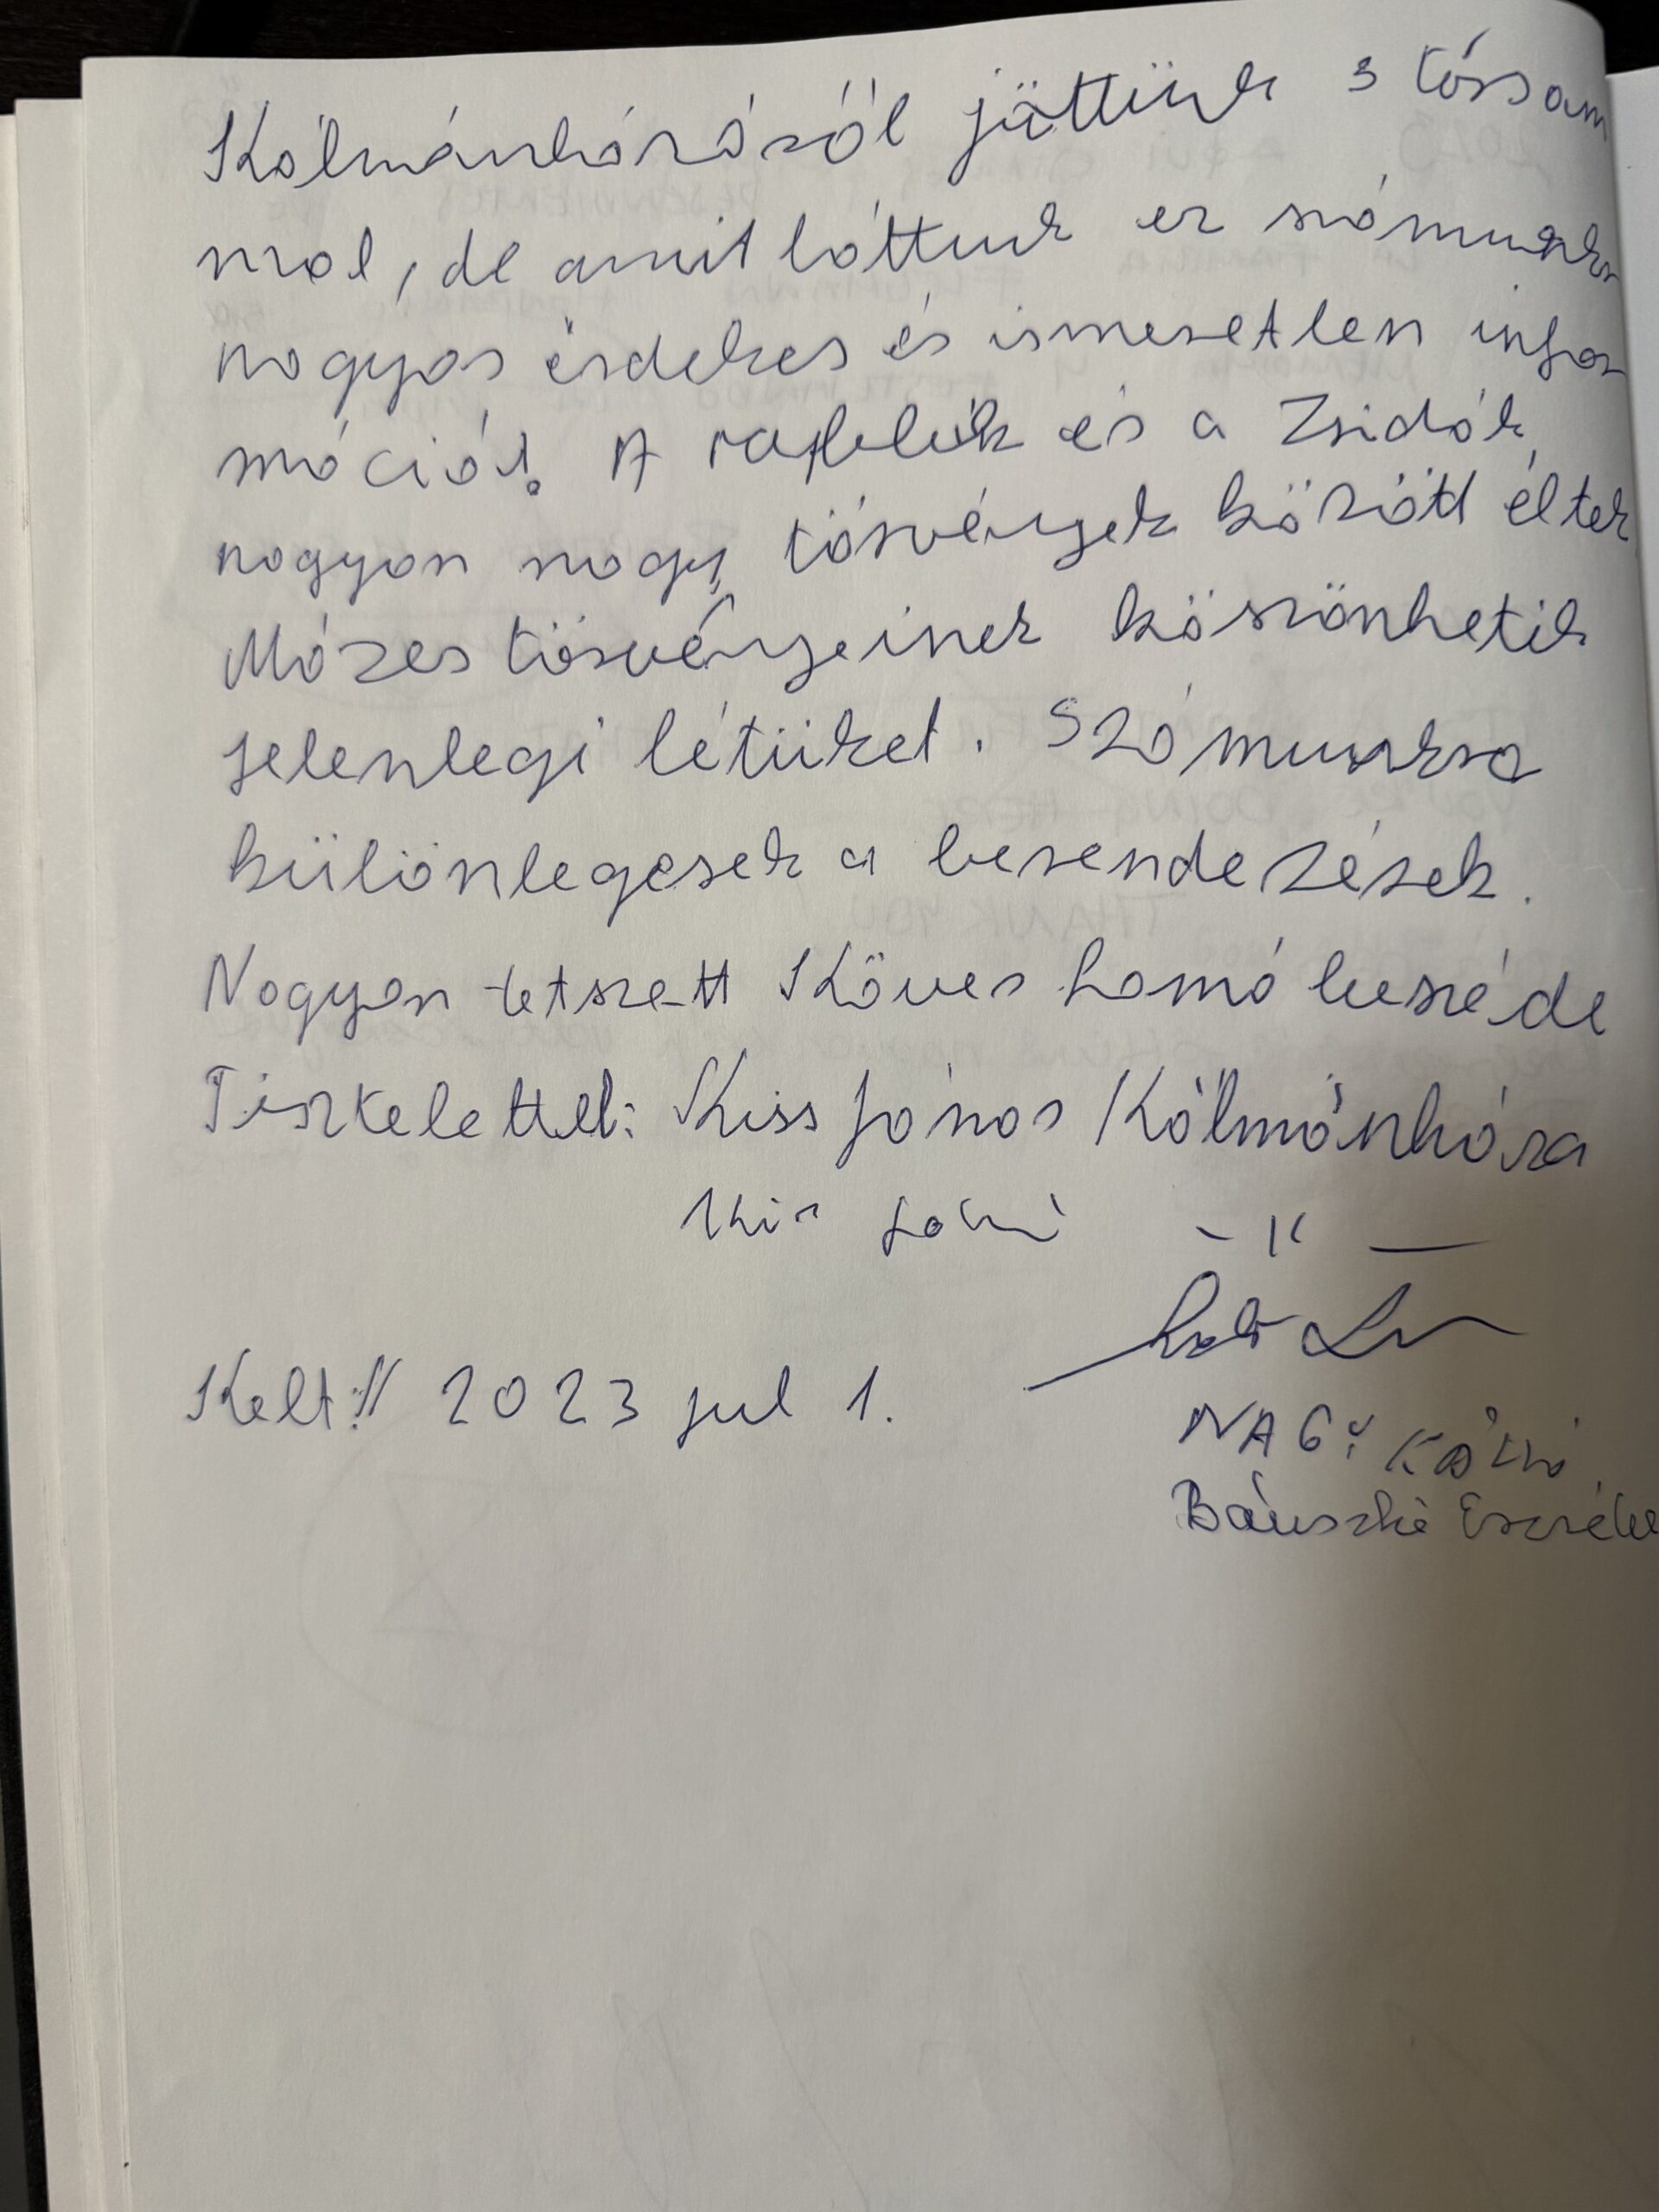 Kálmánházáról jöttünk 3 társam
mal, de amit láttunk ez számunkra
nagyos érdekes és ismeretlen infor
máció! A és a Zsidók
nagyon nagy törvények között éltek
Mózes törvényeinek köszönhetik
jelenlegi létüket. Számunkra
különlegesek a berendezések.
Nagyon tetszett Köves beszéde
Tisztelettel: Kiss János Kálmánháza
Kis
Kelt:// 2023 jul 1.
NAGY